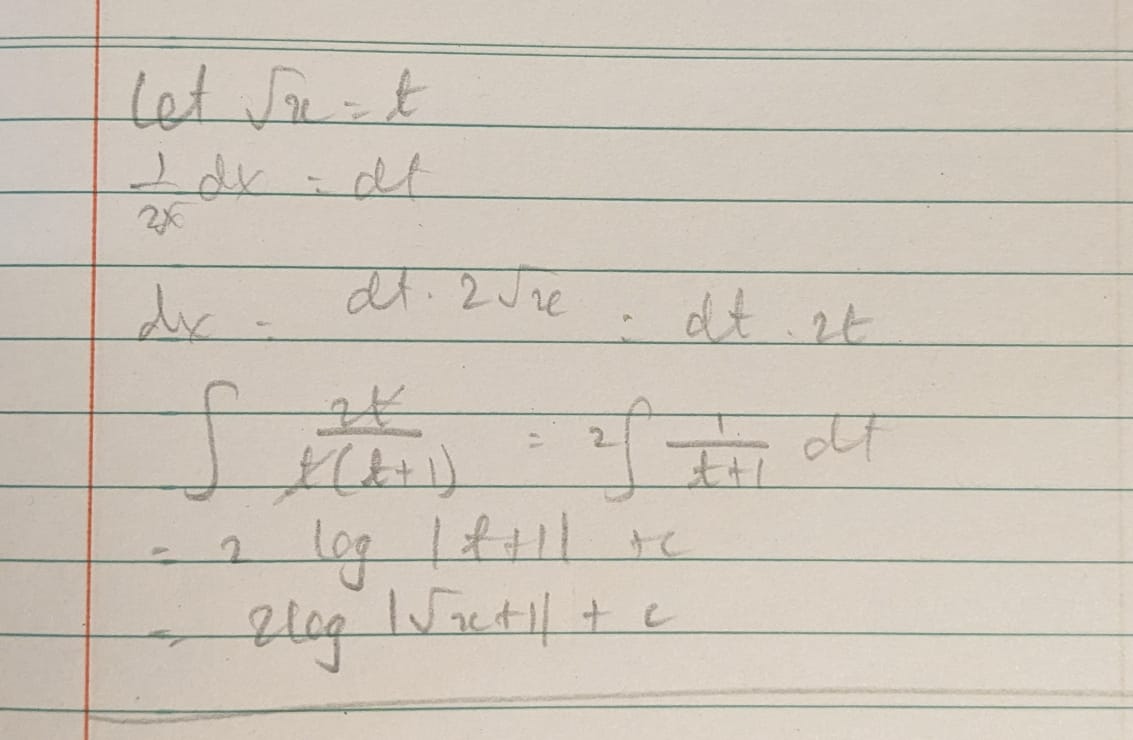 Let √x = t
1/2√x dx = dt
dx = dt. 2√x = dt . 2t
∫ 2t/t(t+1) = 2∫ 1/t+1 dt
= 2 log |t+1| +c
= 2log |√x+1| + c